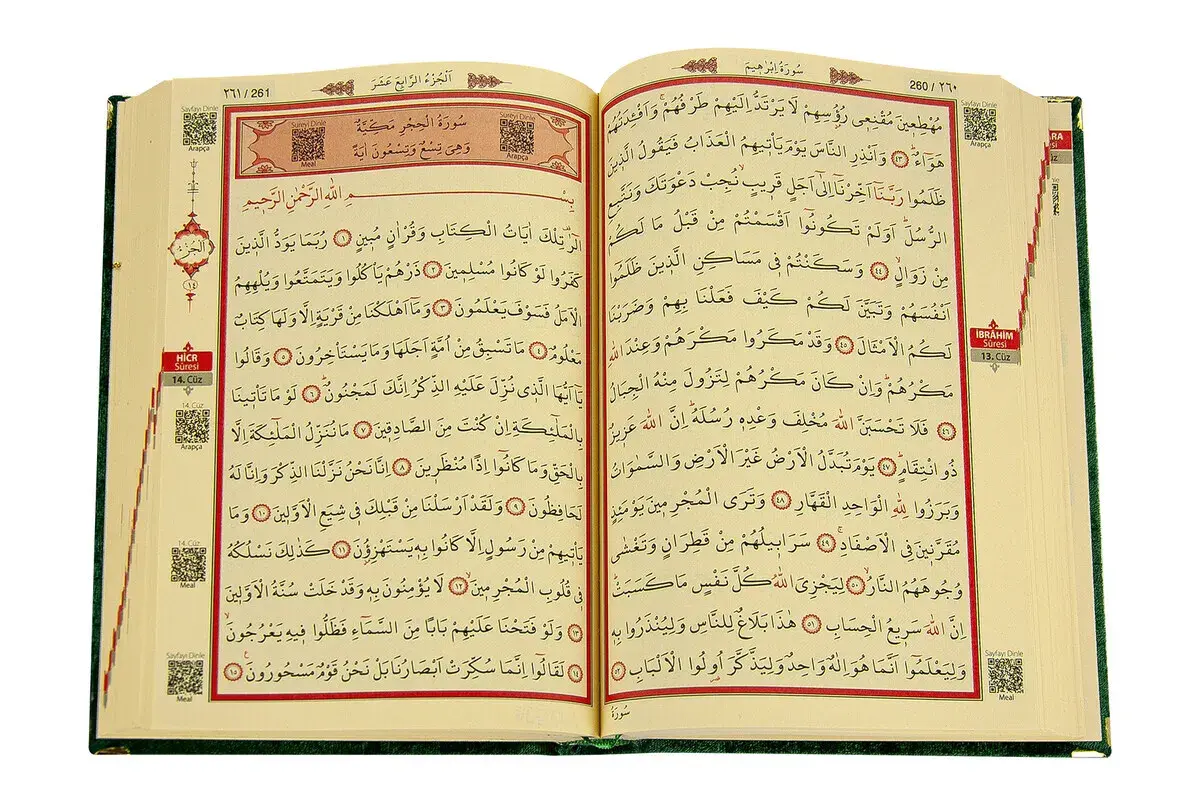 سُورَةُ اِبْرٰهِيمَ
260 / ٢٦٠
Sayfayı Dinle
Arapça
مُهْطِعِينَ مُقْنِعِى رُؤُسِهِمْ لَا يَرْتَدُّ اِلَيْهِمْ طَرْفُهُمْ وَاَفْـِٔدَتُهُمْ
هَوَٓاءٌ ٤٣ وَاَنْذِرِ النَّاسَ يَوْمَ يَأْتِيهِمُ الْعَذَابُ فَيَقُولُ الَّذِينَ
ظَلَمُوا رَبَّنَٓا اَخِّرْنَٓا اِلٰٓى اَجَلٍ قَرِيبٍ نُجِبْ دَعْوَتَكَ وَنَتَّبِعِ
الرُّسُلَ اَوَلَمْ تَكُونُٓوا اَقْسَمْتُمْ مِنْ قَبْلُ مَا لَكُمْ
مِنْ زَوَالٍ ٤٤ وَسَكَنْتُمْ فِى مَسَاكِنِ الَّذِينَ ظَلَمُٓوا
اَنْفُسَهُمْ وَتَبَيَّنَ لَكُمْ كَيْفَ فَعَلْنَا بِهِمْ وَضَرَبْنَا
لَكُمُ الْاَمْثَالَ ٤٥ وَقَدْ مَكَرُوا مَكْرَهُمْ وَعِنْدَ اللّٰهِ
مَكْرُهُمْ وَاِنْ كَانَ مَكْرُهُمْ لِتَزُولَ مِنْهُ الْجِبَالُ
٤٦ فَلَا تَحْسَبَنَّ اللّٰهَ مُخْلِفَ وَعْدِهِ رُسُلَهُ اِنَّ اللّٰهَ عَزِيزٌ
ذُو انْتِقَامٍ ٤٧ يَوْمَ تُبَدَّلُ الْاَرْضُ غَيْرَ الْاَرْضِ وَالسَّمٰوَاتُ
وَبَرَزُوا لِلّٰهِ الْوَاحِدِ الْقَهَّارِ ٤٨ وَتَرَى الْمُجْرِمِينَ يَوْمَئِذٍ
مُقَرَّنِينَ فِى الْاَصْفَادِ ٤٩ سَرَابِيلُهُمْ مِنْ قَطِرَانٍ وَتَغْشٰى
وُجُوهَهُمُ النَّارُ ٥٠ لِيَجْزِىَ اللّٰهُ كُلَّ نَفْسٍ مَا كَسَبَتْ
اِنَّ اللّٰهَ سَرِيعُ الْحِسَابِ ٥١ هٰذَا بَلَاغٌ لِلنَّاسِ وَلِيُنْذَرُوا بِهِ
وَلِيَعْلَمُٓوا اَنَّمَا هُوَ اِلٰهٌ وَاحِدٌ وَلِيَذَّكَّرَ اُولُوا الْاَلْبَابِ ٥٢
سُورَةُ
İBRÂHİM
Sûresi
13. Cüz
Sayfayı Dinle
Meal
٢٦١ / 261
اَلْجُزْءُ الرَّابِعُ عَشَرَ
Sayfayı Dinle
Arapça
Sureyi Dinle
Meal
Sureyi Dinle
Arapça
سُورَةُ الْحِجْرِ مَكِّيَّةٌ
وَهِىَ تِسْعٌ وَتِسْعُونَ اٰيَةً
بِسْمِ اللّٰهِ الرَّحْمٰنِ الرَّحِيمِ
الٓرٰ تِلْكَ اٰيَاتُ الْكِتَابِ وَقُرْاٰنٍ مُبِينٍ ١ رُبَمَا يَوَدُّ الَّذِينَ
كَفَرُوا لَوْ كَانُوا مُسْلِمِينَ ٢ ذَرْهُمْ يَأْكُلُوا وَيَتَمَتَّعُوا وَيُلْهِهِمُ
الْاَمَلُ فَسَوْفَ يَعْلَمُونَ ٣ وَمَٓا اَهْلَكْنَا مِنْ قَرْيَةٍ اِلَّا وَلَهَا كِتَابٌ
مَعْلُومٌ ٤ مَا تَسْبِقُ مِنْ اُمَّةٍ اَجَلَهَا وَمَا يَسْتَأْخِرُونَ ٥ وَقَالُوا
يَٓا اَيُّهَا الَّذِى نُزِّلَ عَلَيْهِ الذِّكْرُ اِنَّكَ لَمَجْنُونٌ ٦ لَوْ مَا تَأْتِينَا
بِالْمَلٰٓئِكَةِ اِنْ كُنْتَ مِنَ الصَّادِقِينَ ٧ مَا نُنَزِّلُ الْمَلٰٓئِكَةَ اِلَّا
بِالْحَقِّ وَمَا كَانُٓوا اِذًا مُنْظَرِينَ ٨ اِنَّا نَحْنُ نَزَّلْنَا الذِّكْرَ وَاِنَّا لَهُ
لَحَافِظُونَ ٩ وَلَقَدْ اَرْسَلْنَا مِنْ قَبْلِكَ فِى شِيَعِ الْاَوَّلِينَ ١٠ وَمَا
يَأْتِيهِمْ مِنْ رَسُولٍ اِلَّا كَانُوا بِهِ يَسْتَهْزِؤُنَ ١١ كَذٰلِكَ نَسْلُكُهُ
فِى قُلُوبِ الْمُجْرِمِينَ ١٢ لَا يُؤْمِنُونَ بِهِ وَقَدْ خَلَتْ سُنَّةُ الْاَوَّلِينَ
١٣ وَلَوْ فَتَحْنَا عَلَيْهِمْ بَابًا مِنَ السَّمَٓاءِ فَظَلُّوا فِيهِ يَعْرُجُونَ
١٤ لَقَالُٓوا اِنَّمَا سُكِّرَتْ اَبْصَارُنَا بَلْ نَحْنُ قَوْمٌ مَسْحُورُونَ ١٥
اَلْجُزْءُ
١٤
HİCR
Sûresi
14. Cüz
14. Cüz
Arapça
14. Cüz
Meal
Sayfayı Dinle
Meal